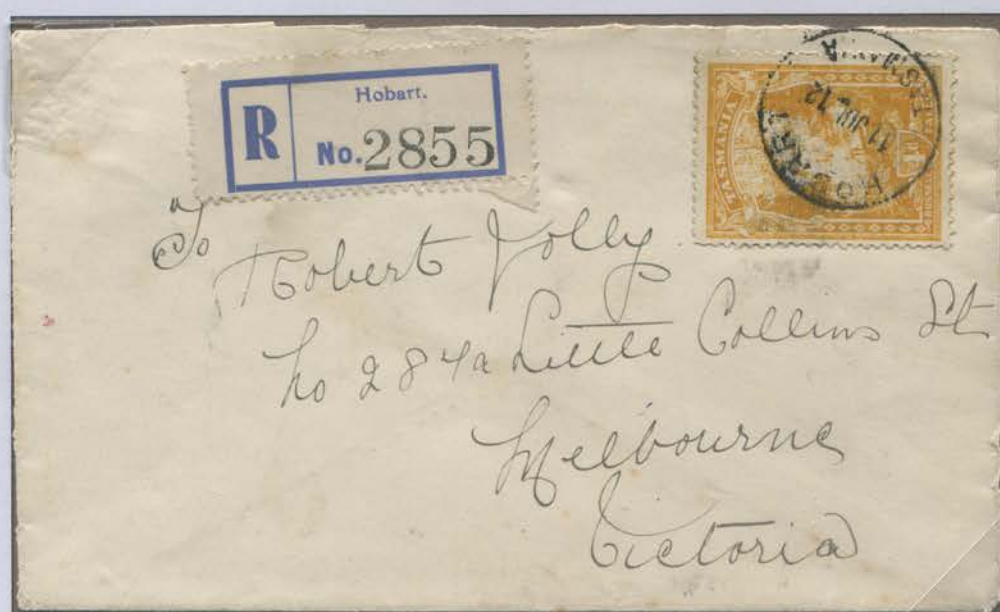 Hobart.
R No. 2855
TASMANIA
HOBART
11 JUL 12
TASMANIA
To
Robert Jolly
No 284a Little Collins St
Melbourne
Victoria